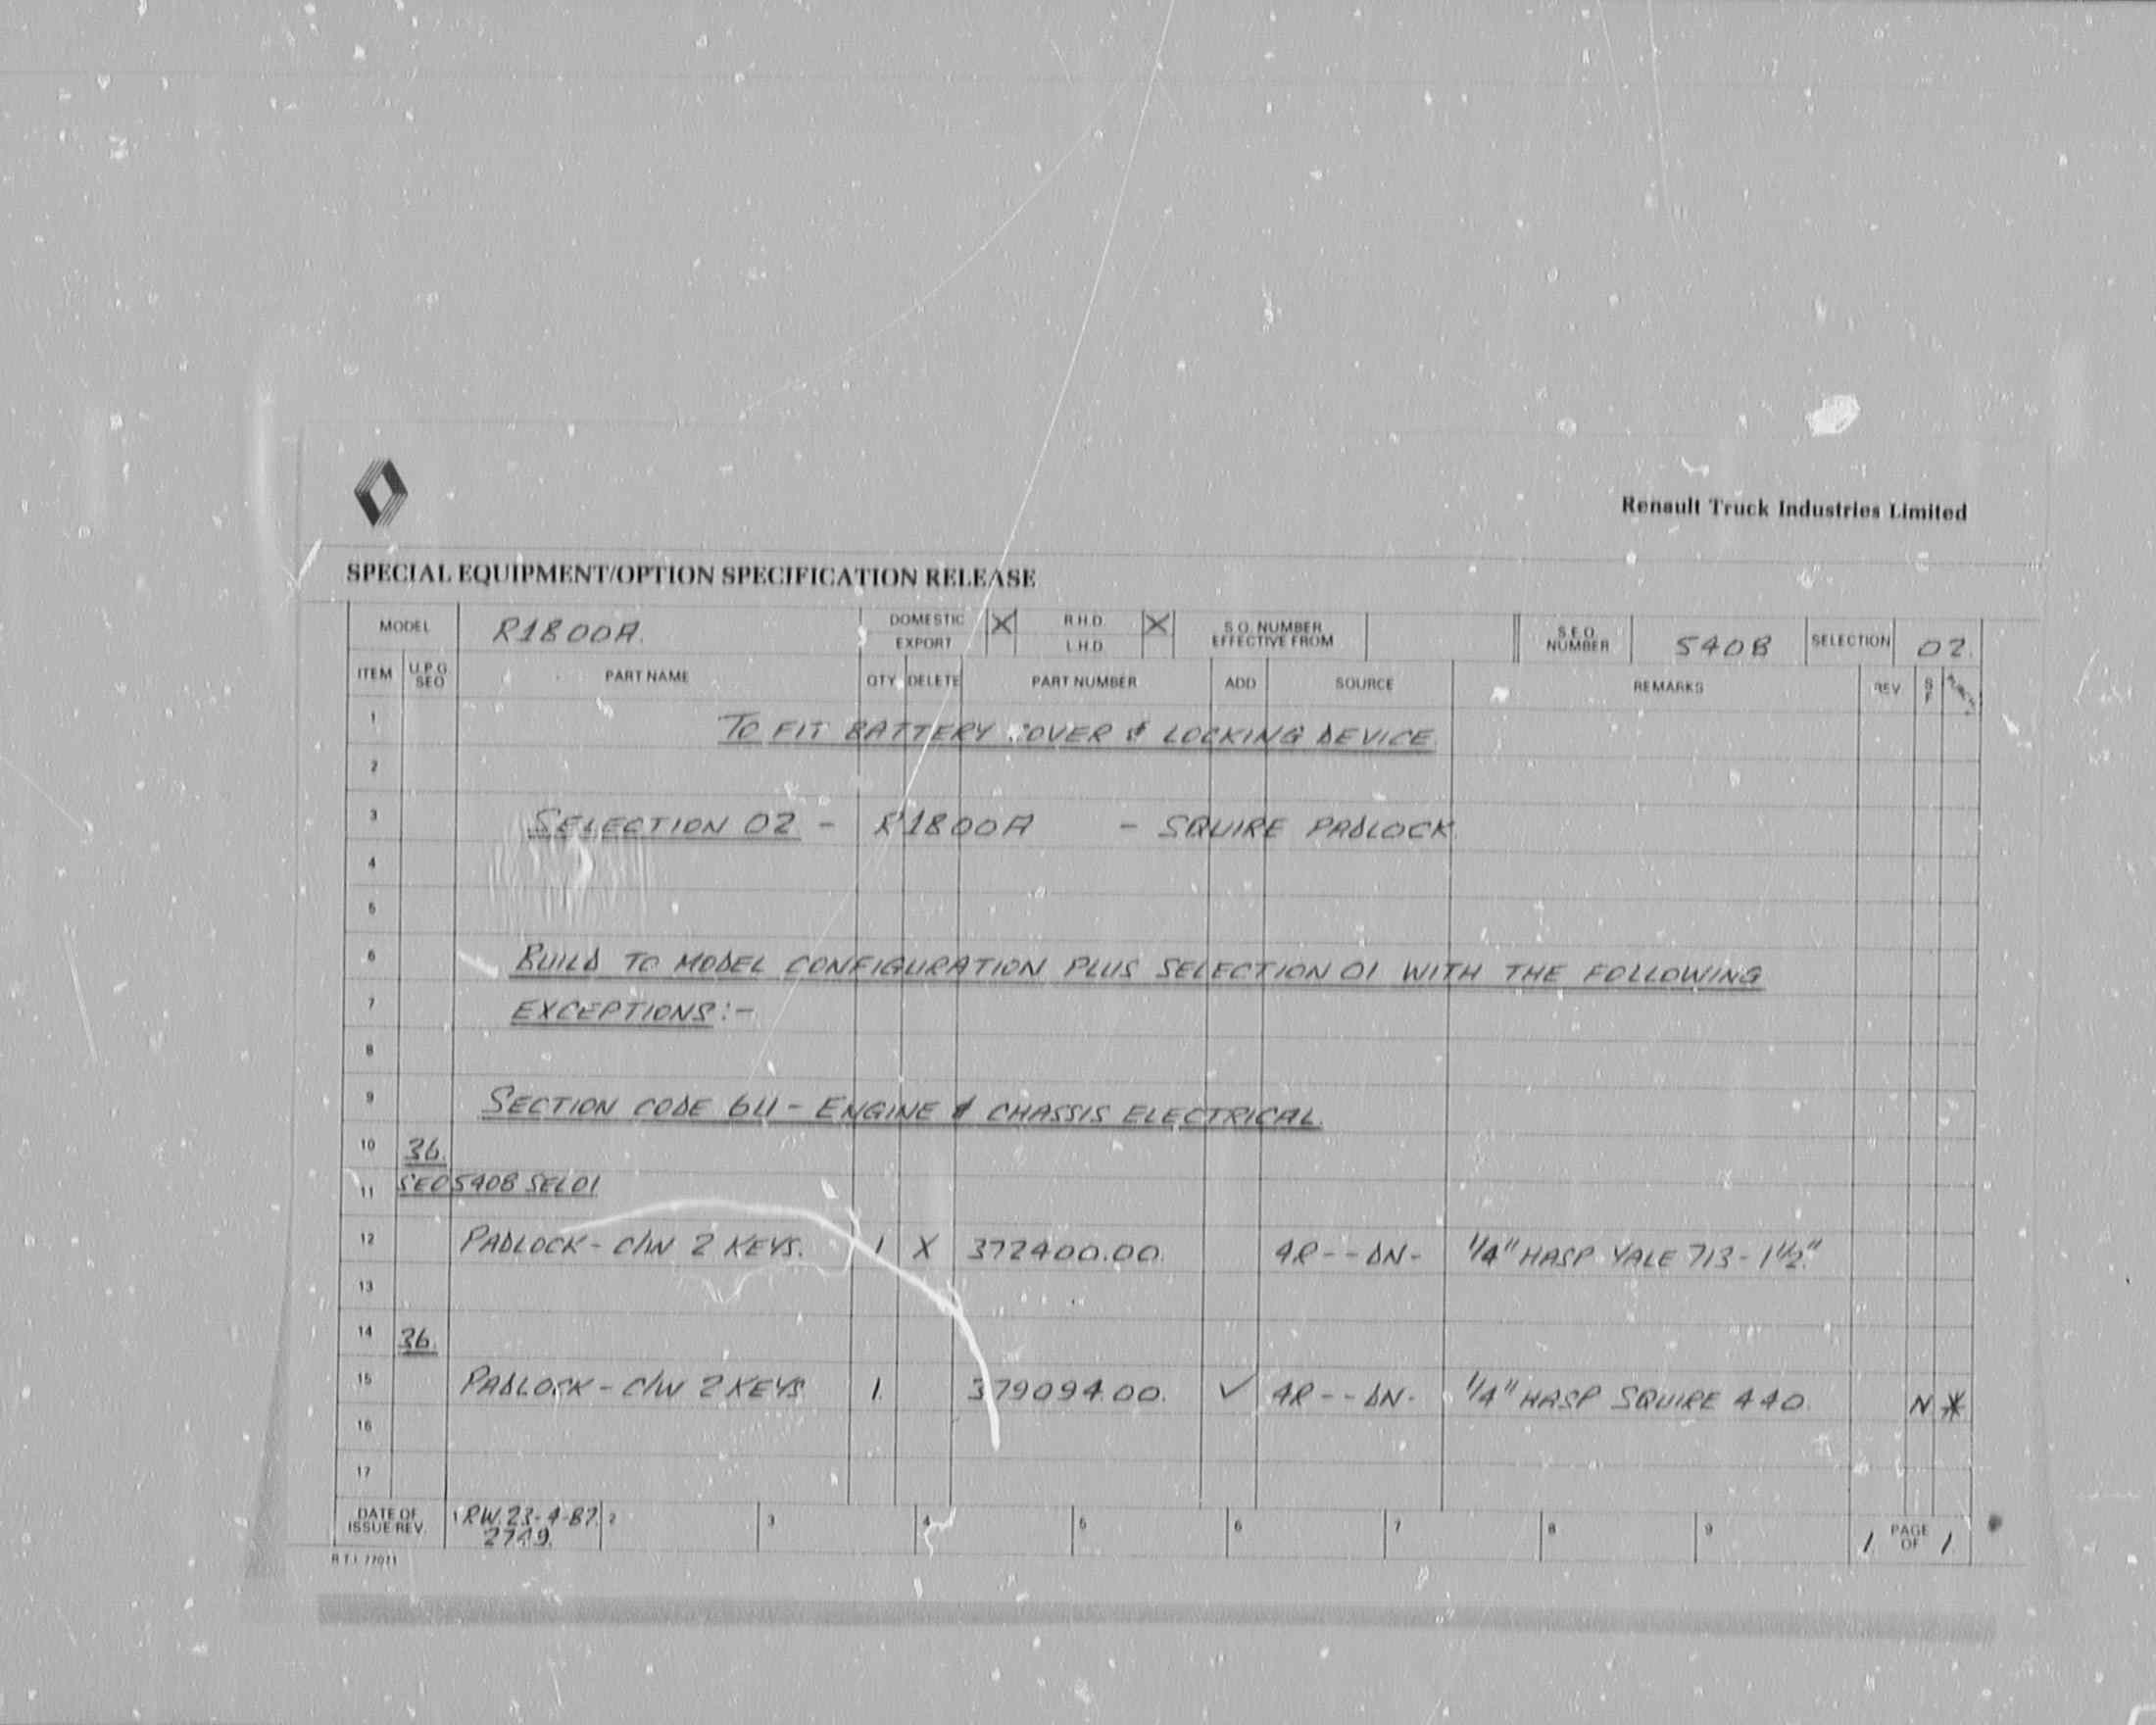 Renault Truck Industries Limited
SPECIAL EQUIPMENT/OPTION SPECIFICATION RELEASE
MODEL R1800A. DOMESTIC EXPORT X R.H.D. L.H.D. X S.O. NUMBER EFFECTIVE FROM S.E.O. NUMBER 540B SELECTION 02.
ITEM U.P.G. SEO PART NAME QTY DELETE PART NUMBER ADD SOURCE REMARKS REV S F
1 TO FIT BATTERY COVER & LOCKING DEVICE.
2
3 SELECTION 02 - R1800A - SQUIRE PADLOCK.
4
5
6 BUILD TO MODEL CONFIGURATION PLUS SELECTION 01 WITH THE FOLLOWING
7 EXCEPTIONS:-
8
9 SECTION CODE 64 - ENGINE & CHASSIS ELECTRICAL.
10 36.
11 SEO 540B SEL 01
12 PADLOCK - C/W 2 KEYS. 1 X 372400.00. 4R--DN- 1/4" HASP YALE 713 - 1 1/2"
13
14 36.
15 PADLOCK - C/W 2 KEYS 1. 379094.00. ✓ 4R--DN- 1/4" HASP SQUIRE 440. N *
16
17
DATE OF ISSUE/REV. 1 RW. 23-4-87. 2 3 4 5 6 7 8 9 1 PAGE OF 1
2749.
R.T.I. 77071